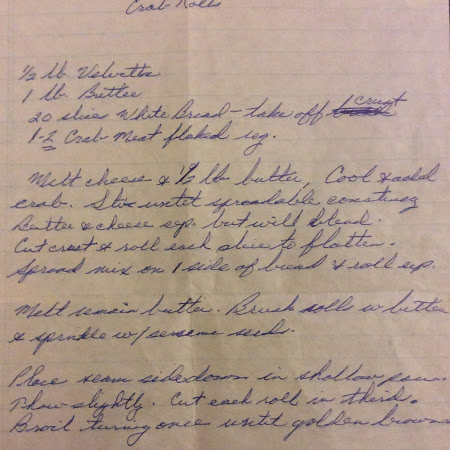 Crab Rolls
1/2 lb. Velvetta
1 lb. Butter
20 slices White Bread - take off crust
1-2 Crab Meat flaked reg.
Melt cheese & 1/2 lb. butter, Cool & add
crab. Stir until spreadable consistency
Butter & cheese sep. but will blend.
Cut crest & roll each slice to flatten.
Spread mix on 1 side of bread & roll up.
Melt remain butter. Brush rolls w butter
& sprinkle w/ sesame seed.
Place seam side down in shallow pan.
Thaw slightly. Cut each roll in third.
Broil turning once until golden brown